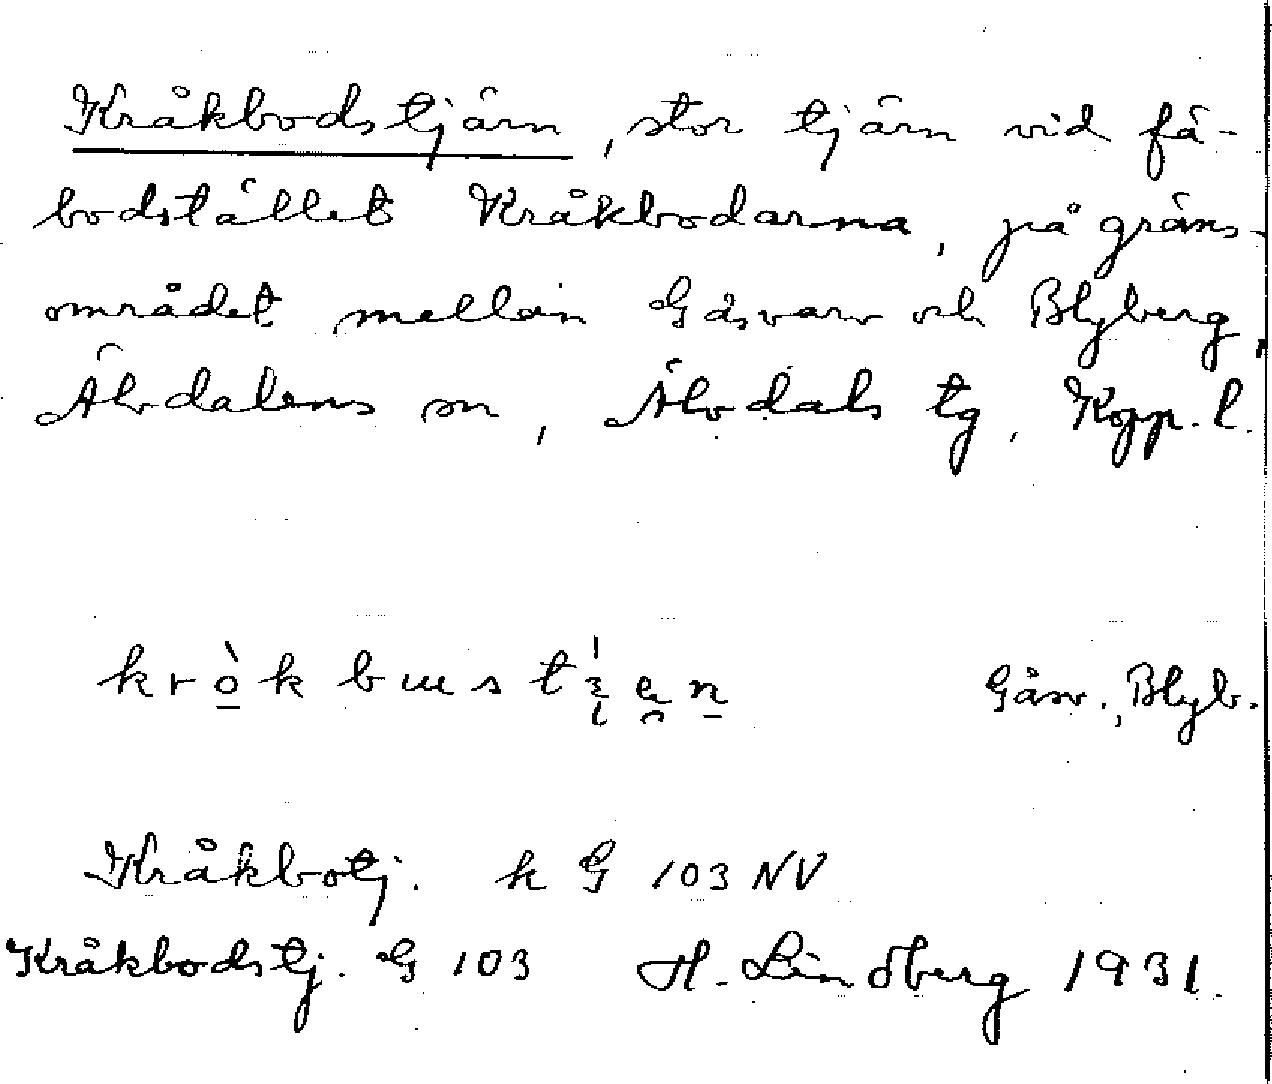 Kråkbodstjärn, stor tjärn vid fä-
bodstället Kråkbodarna, på gräns-
området mellan Gåsvarv och Blyberg,
Älvdalens sn, Älvdals tg, Kopp. l.
Gåsv., Blyb.
Kråkbotj. k G 103 NV
Kråkbodstj. G 103 H. Lindberg 1931.